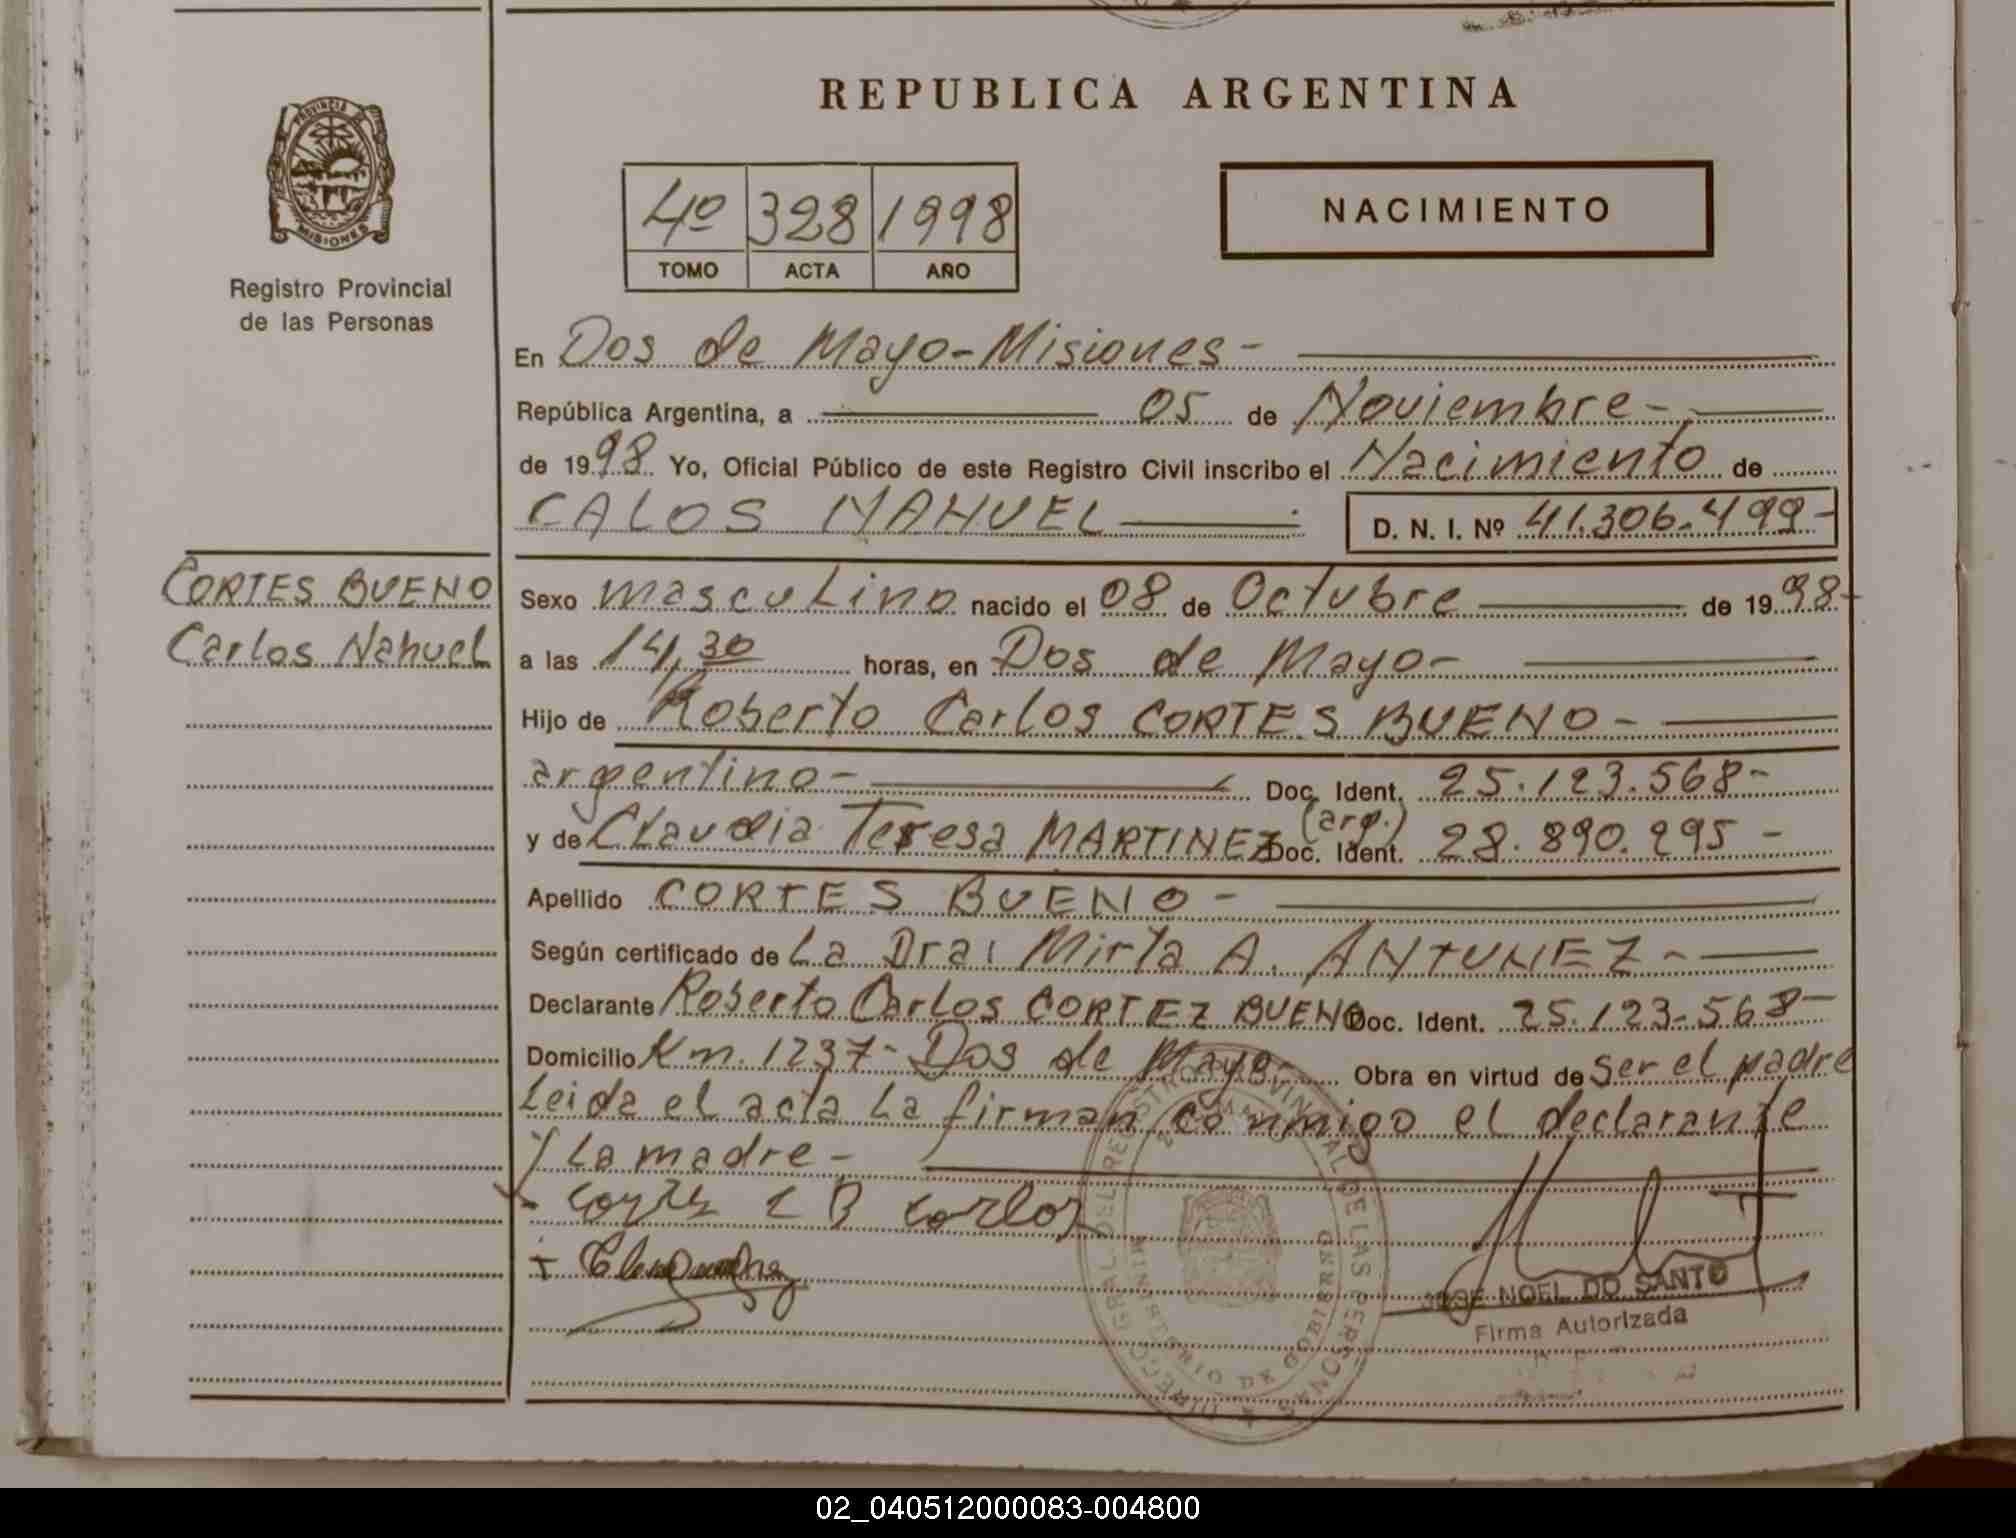 REPUBLICA ARGENTINA
PROVINCIA DE MISIONES
Registro Provincial
de las Personas
4º 328 1998
TOMO ACTA AÑO
NACIMIENTO
En Dos de Mayo-Misiones-
República Argentina, a 05 de Noviembre-
de 1998 Yo, Oficial Público de este Registro Civil inscribo el Nacimiento de
CALOS NAHUEL D. N. I. Nº 41.306.499-
CORTES BUENO
Carlos Nahuel
Sexo masculino nacido el 08 de Octubre de 1998-
a las 14,30 horas, en Dos de Mayo-
Hijo de Roberto Carlos CORTES BUENO-
argentino- Doc. Ident. 25.123.568-
y de Claudia Teresa MARTINEZ (arg.) Doc. Ident. 28.890.295-
Apellido CORTES BUENO-
Según certificado de La Dra: Mirta A. ANTUNEZ-
Declarante Roberto Carlos CORTEZ BUENO Doc. Ident. 25.123.568-
Domicilio Km. 1237- Dos de Mayo- Obra en virtud de ser el padre
Leida el acta la firman conmigo el declarante
y La madre-
Carlos
JOSE NOEL DO SANTO
Firma Autorizada
DIREC. GRAL. DEL REGISTRO PROVINCIAL DE LAS PERSONAS
MINISTERIO DE GOBIERNO
02_040512000083-004800